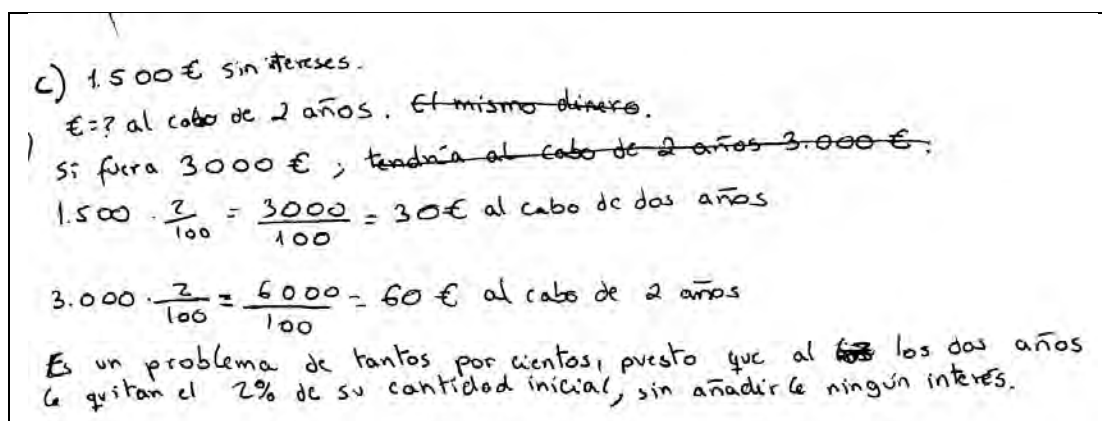 c) 1.500 € sin itereses.
€=? al cabo de 2 años. El mismo dinero.
Si fuera 3000 € ; tendría al cabo de 2 años 3.000 €.
1.500 · 2/100 = 3000/100 = 30€ al cabo de dos años
3.000 · 2/100 = 6000/100 = 60 € al cabo de 2 años
Es un problema de tantos por cientos, puesto que al los dos años
le quitan el 2% de su cantidad inicial, sin añadirle ningún interés.